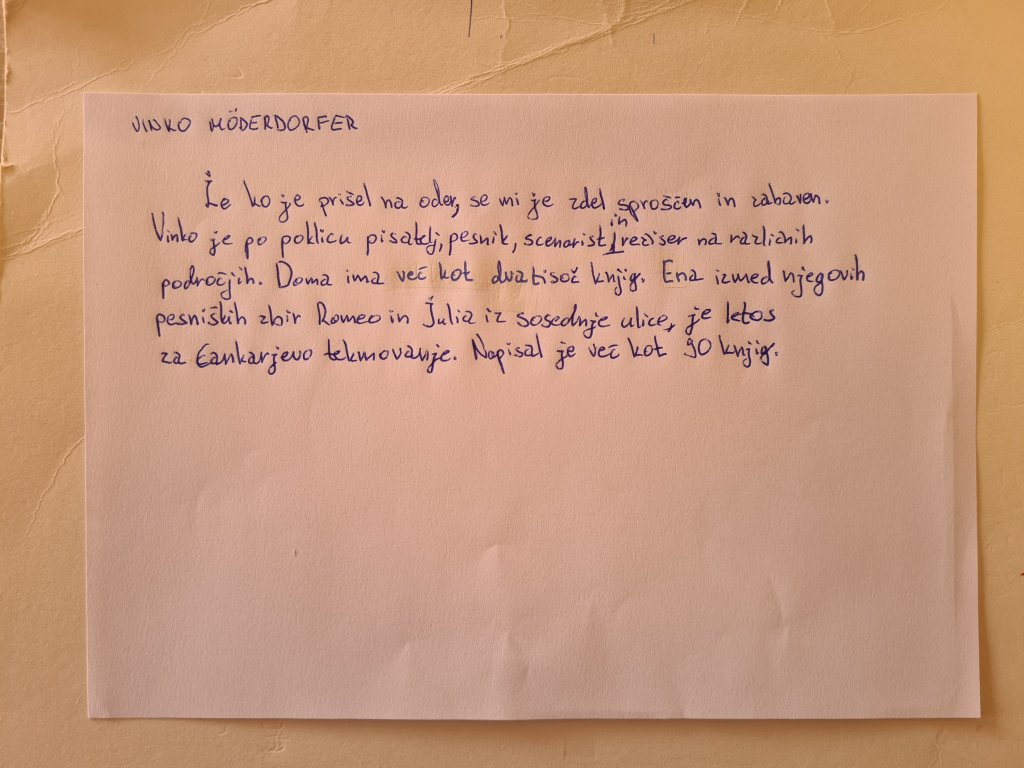 VINKO MÖDERDORFER
Že ko je prišel na oder, se mi je zdel sproščen in zabaven.
Vinko je po poklicu pisatelj, pesnik, scenarist in režiser na različnih
področjih. Doma ima več kot dvatisoč knjig. Ena izmed njegovih
pesniških zbir Romeo in Julia iz sosednje ulice, je letos
za Cankarjevo tekmovanje. Napisal je več kot 90 knjig.